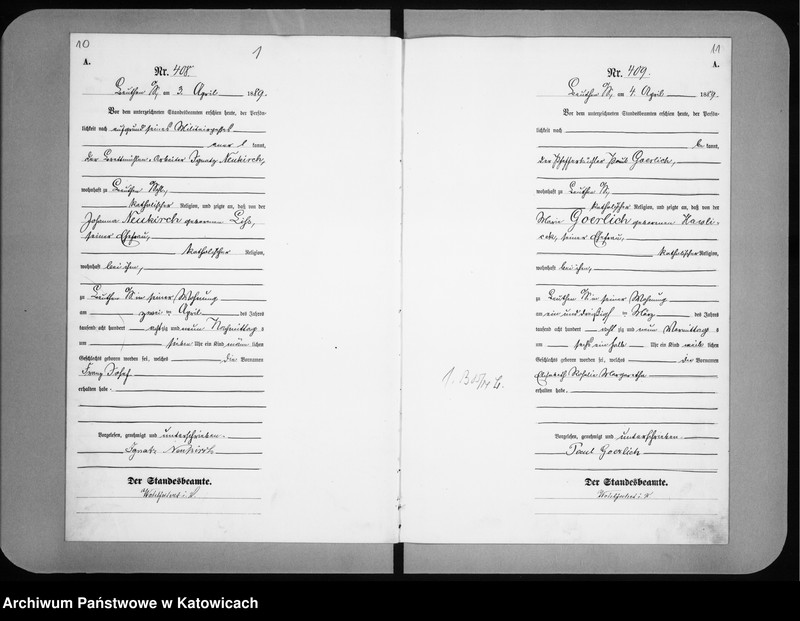 10
1
A.
Nr. 408
Beuthen O/S, am 3. April 1889.
Vor dem unterzeichneten Standesbeamten erschien heute, der Persön-
lichkeit nach auf Grund seines Militairpasses
aner kannt,
der Arbeiter Ignatz Neukirch,
wohnhaft zu Beuthen O/S,
katholischer Religion, und zeigte an, daß von der
Johanna Neukirch geborenen
seiner Ehefrau,
katholischer Religion,
wohnhaft bei ihm,
zu Beuthen O/S in seiner Wohnung
am zwei ten April des Jahres
tausend acht hundert achtzig und neun Nachmittag s
um sieben Uhr ein Kind männ lichen
Geschlechts geboren worden sei, welches die Vornamen
Franz Josef
erhalten habe.
Vorgelesen, genehmigt und unterschrieben.
Ignatz Neukirch
Der Standesbeamte.
11
A.
Nr. 409.
Beuthen O/S, am 4. April 1889.
Vor dem unterzeichneten Standesbeamten erschien heute, der Persön-
lichkeit nach
be kannt,
der Pfefferküchler Paul Goerlich,
wohnhaft zu Beuthen O/S,
katholischer Religion, und zeigte an, daß von der
Marie Goerlich geborenen Hawli-
seiner Ehefrau,
katholischer Religion,
wohnhaft bei ihm,
zu Beuthen O/S in seiner Wohnung
am ein und dreißigsten März des Jahres
tausend acht hundert acht zig und neun Vormittag s
um sechs ein halb Uhr ein Kind weib lichen
Geschlechts geboren worden sei, welches die Vornamen
Elisabeth Rosalie Margarethe
erhalten habe.
Vorgelesen, genehmigt und unterschrieben.
Paul Goerlich
Der Standesbeamte.
Archiwum Państwowe w Katowicach